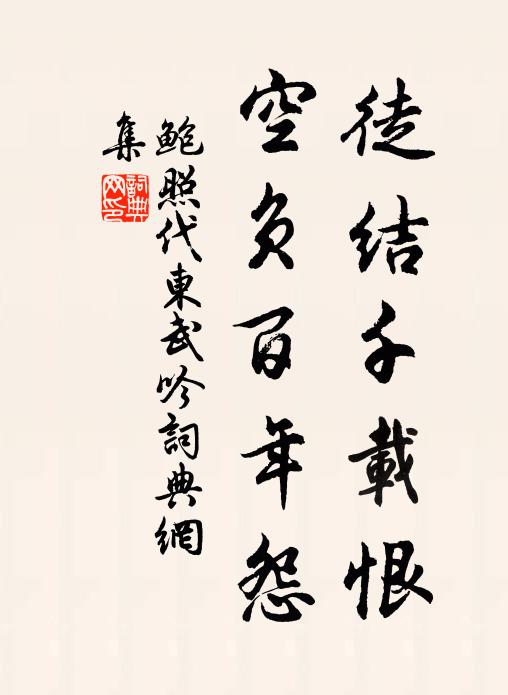 徒结千載恨
空负百年怨
鲍照代東武吟詞典網
集
詞典
网印